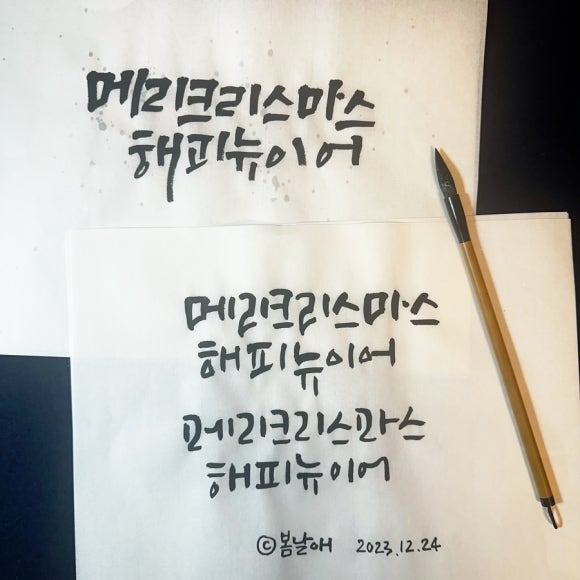 메리크리스마스
해피뉴이어
메리크리스마스
해피뉴이어
메리크리스마스
해피뉴이어
©봄날애 2023.12.24